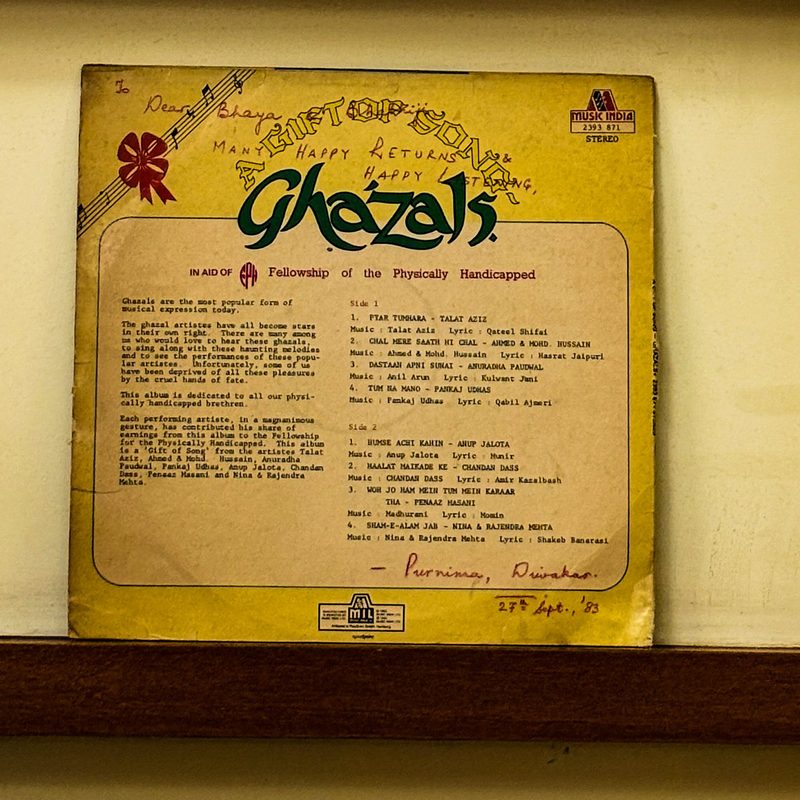 To
Dear Bhaya
MANY HAPPY RETURNS &
HAPPY LISTENING,
A GIFT OF SONG
Ghazals
MUSIC INDIA
2393 871
STEREO
IN AID OF FPH Fellowship of the Physically Handicapped
Ghazals are the most popular form of
musical expression today.
The ghazal artistes have all become stars
in their own right. There are many among
us who would love to hear these ghazals,
to sing along with these haunting melodies
and to see the performances of these popu-
lar artistes. Unfortunately, some of us
have been deprived of all these pleasures
by the cruel hands of fate.
This album is dedicated to all our physi-
cally handicapped brethren.
Each performing artiste, in a magnanimous
gesture, has contributed his share of
earnings from this album to the Fellowship
for the Physically Handicapped. This album
is a 'Gift of Song' from the artistes Talat
Aziz, Ahmed & Mohd. Hussain, Anuradha
Paudwal, Pankaj Udhas, Anup Jalota, Chandan
Dass, Penaaz Masani and Nina & Rajendra
Mehta.
Side 1
1. PYAR TUMHARA - TALAT AZIZ
Music : Talat Aziz Lyric : Qateel Shifai
2. CHAL MERE SAATH HI CHAL - AHMED & MOHD. HUSSAIN
Music : Ahmed & Mohd. Hussain Lyric : Hasrat Jaipuri
3. DASTAAN APNI SUNAI - ANURADHA PAUDWAL
Music : Anil Arun Lyric : Kulwant Jani
4. TUM NA MANO - PANKAJ UDHAS
Music : Pankaj Udhas Lyric : Qabil Ajmeri
Side 2
1. HUMSE ACHI KAHIN - ANUP JALOTA
Music : Anup Jalota Lyric : Munir
2. HAALAT MAIKADE KE - CHANDAN DASS
Music : CHANDAN DASS Lyric : Amir Kazalbash
3. WOH JO HAM MEIN TUM MEIN KARAAR
THA - PENAAZ MASANI
Music : Madhurani Lyric : Momin
4. SHAM-E-ALAM JAB - NINA & RAJENDRA MEHTA
Music : Nina & Rajendra Mehta Lyric : Shakeb Banarasi
- Purnima, Diwakar.
27th Sept., '83
MIL